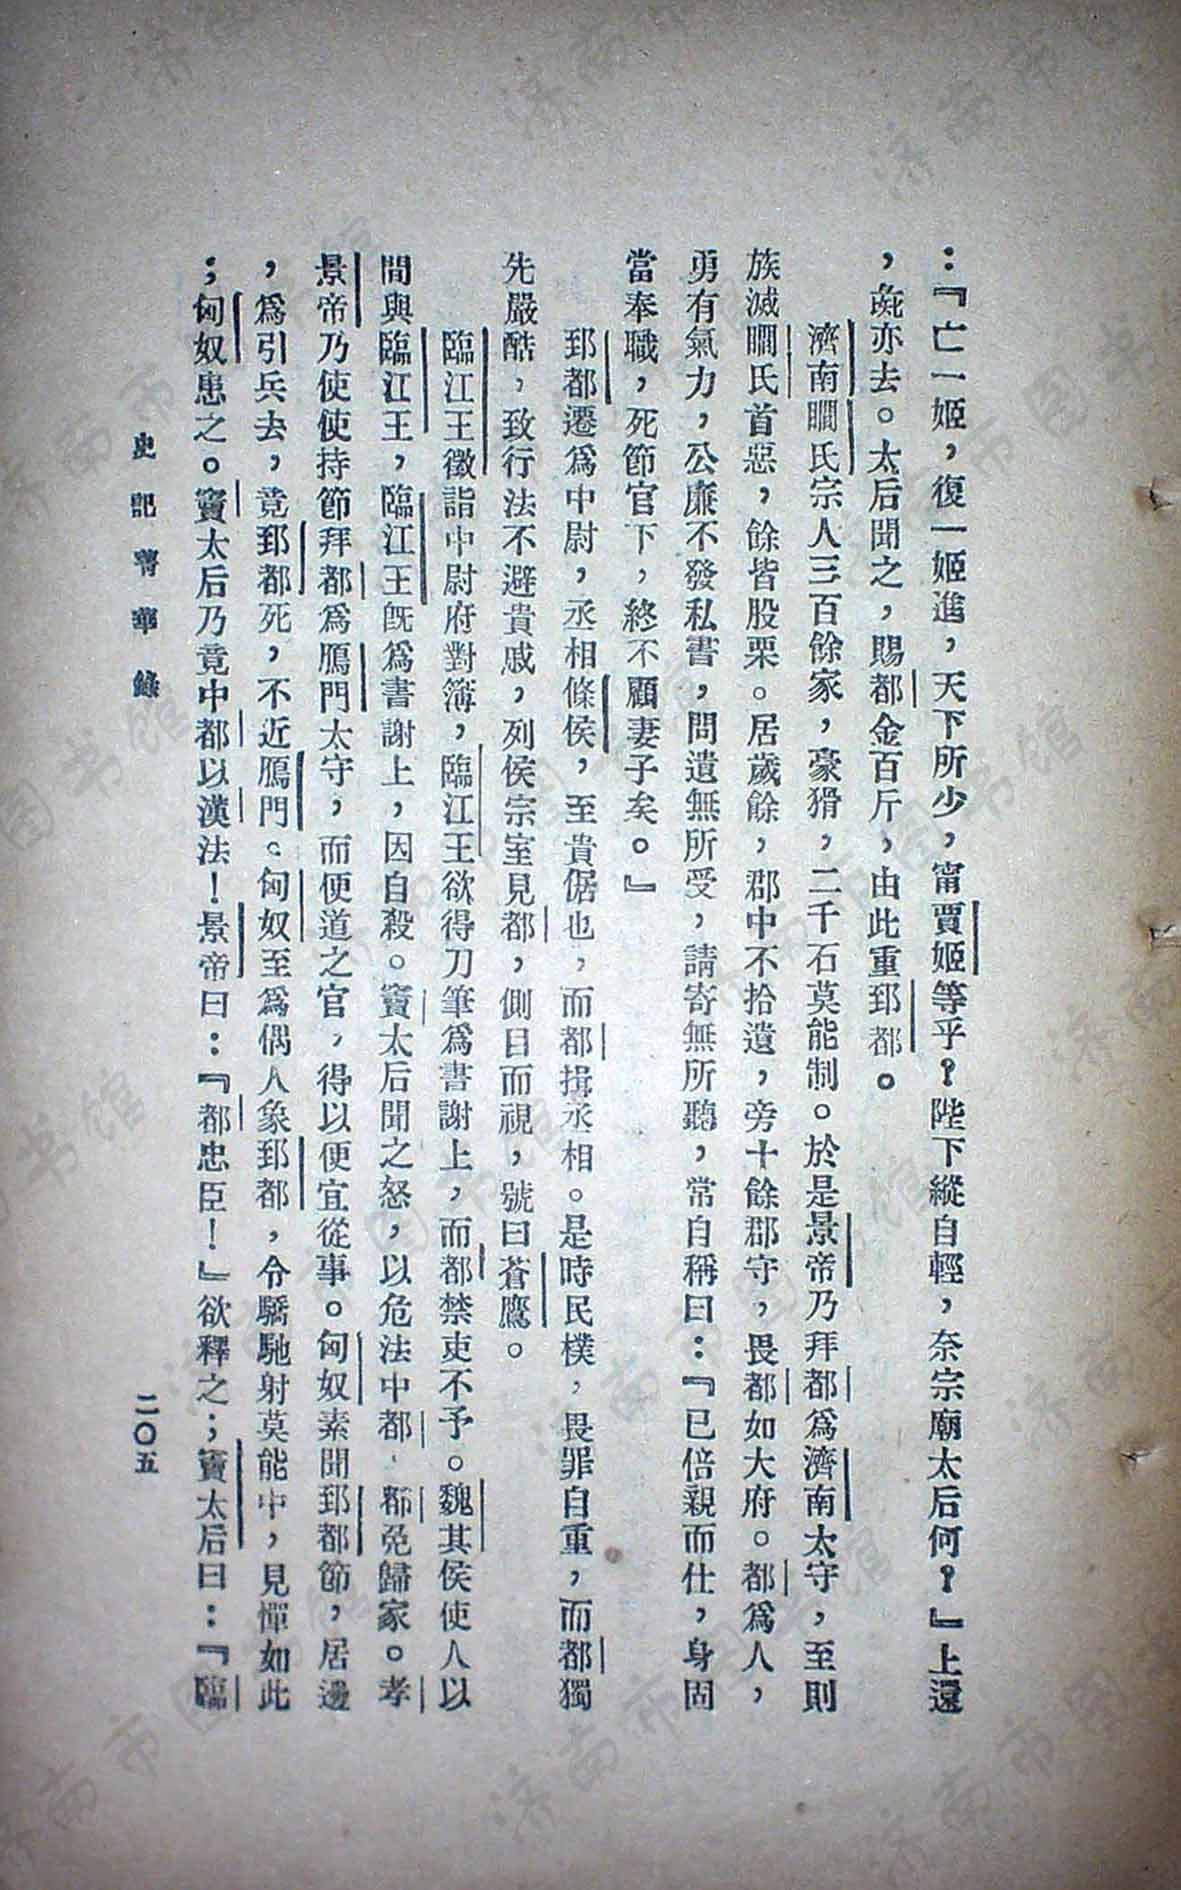 ：『亡一姬，復一姬進，天下所少，甯賈姬等乎？陛下縱自輕，奈宗廟太后何？』上還
，彘亦去。太后聞之，賜都金百斤，由此重郅都。
濟南瞷氏宗人三百餘家，豪猾，二千石莫能制。於是景帝乃拜都爲濟南太守，至則
族滅瞷氏首惡，餘皆股栗。居歲餘，郡中不拾遺，旁十餘郡守，畏都如大府。都爲人，
勇有氣力，公廉不發私書，問遺無所受，請寄無所聽，常自稱曰：『已倍親而仕，身固
當奉職，死節官下，終不顧妻子矣。』
郅都遷爲中尉，丞相條侯，至貴倨也，而都揖丞相。是時民樸，畏罪自重，而都獨
先嚴酷，致行法不避貴戚，列侯宗室見都，側目而視，號曰蒼鷹。
臨江王徵詣中尉府對簿，臨江王欲得刀筆爲書謝上，而都禁吏不予。魏其侯使人以
間與臨江王，臨江王旣爲書謝上，因自殺。竇太后聞之怒，以危法中都，都免歸家。孝
景帝乃使使持節拜都爲鴈門太守，而便道之官，得以便宜從事。匈奴素聞郅都節，居邊
，爲引兵去，竟郅都死，不近鴈門。匈奴至爲偶人象郅都，令騎馳射莫能中，見憚如此
；匈奴患之。竇太后乃竟中都以漢法！景帝曰：『都忠臣！』欲釋之；竇太后曰：『臨
史記菁華錄
二〇五
济南市图书馆